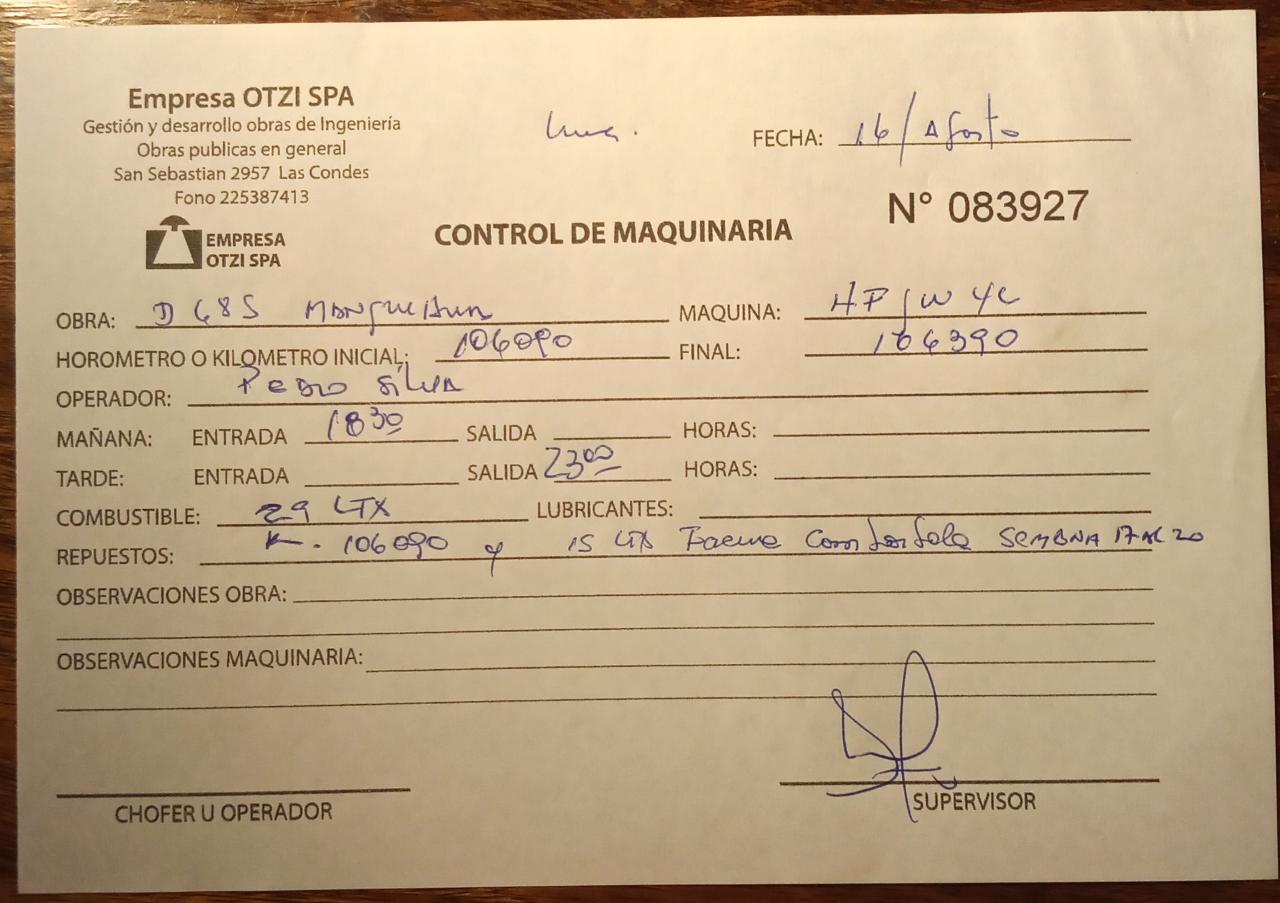 Empresa OTZI SPA
Gestión y desarrollo obras de Ingeniería
Obras publicas en general
San Sebastian 2957 Las Condes
Fono 225387413
EMPRESA
OTZI SPA
FECHA: 16/Agosto
N° 083927
CONTROL DE MAQUINARIA
OBRA: D 685 MAQUINA:
HOROMETRO O KILOMETRO INICIAL: 106090 FINAL: 106390
OPERADOR: Pedro Silva
MAÑANA: ENTRADA 1830 SALIDA HORAS:
TARDE: ENTRADA SALIDA 2300 HORAS:
COMBUSTIBLE: 29 LTX LUBRICANTES:
REPUESTOS: K. 106090 y 15 LTX SEMANA 17 AL 20
OBSERVACIONES OBRA:
OBSERVACIONES MAQUINARIA:
CHOFER U OPERADOR SUPERVISOR